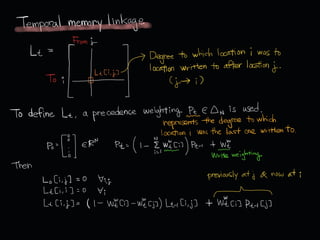 Temporal memory linkage
From j
L_t =
To i
L_t[i,j]
Degree to which location i was to
location written to after location j.
(j → i)
To define L_t, a precedence weighting P_t ∈ Δ_N is used.
represents the degree to which
location i was the last one written to.
P_0 = [0 ⋮ 0] ∈ ℝ^N   P_t = (1 - Σ_{i=1}^{N} W_t^w[i]) P_{t-1} + W_t^w
Write weighting
Then
L_0[i,j] = 0   ∀i,j
previously at j & now at i
L_t[i,i] = 0   ∀i
L_t[i,j] = (1 - W_t^w[i] - W_t^w[j]) L_{t-1}[i,j] + W_t^w[i] P_{t-1}[j]